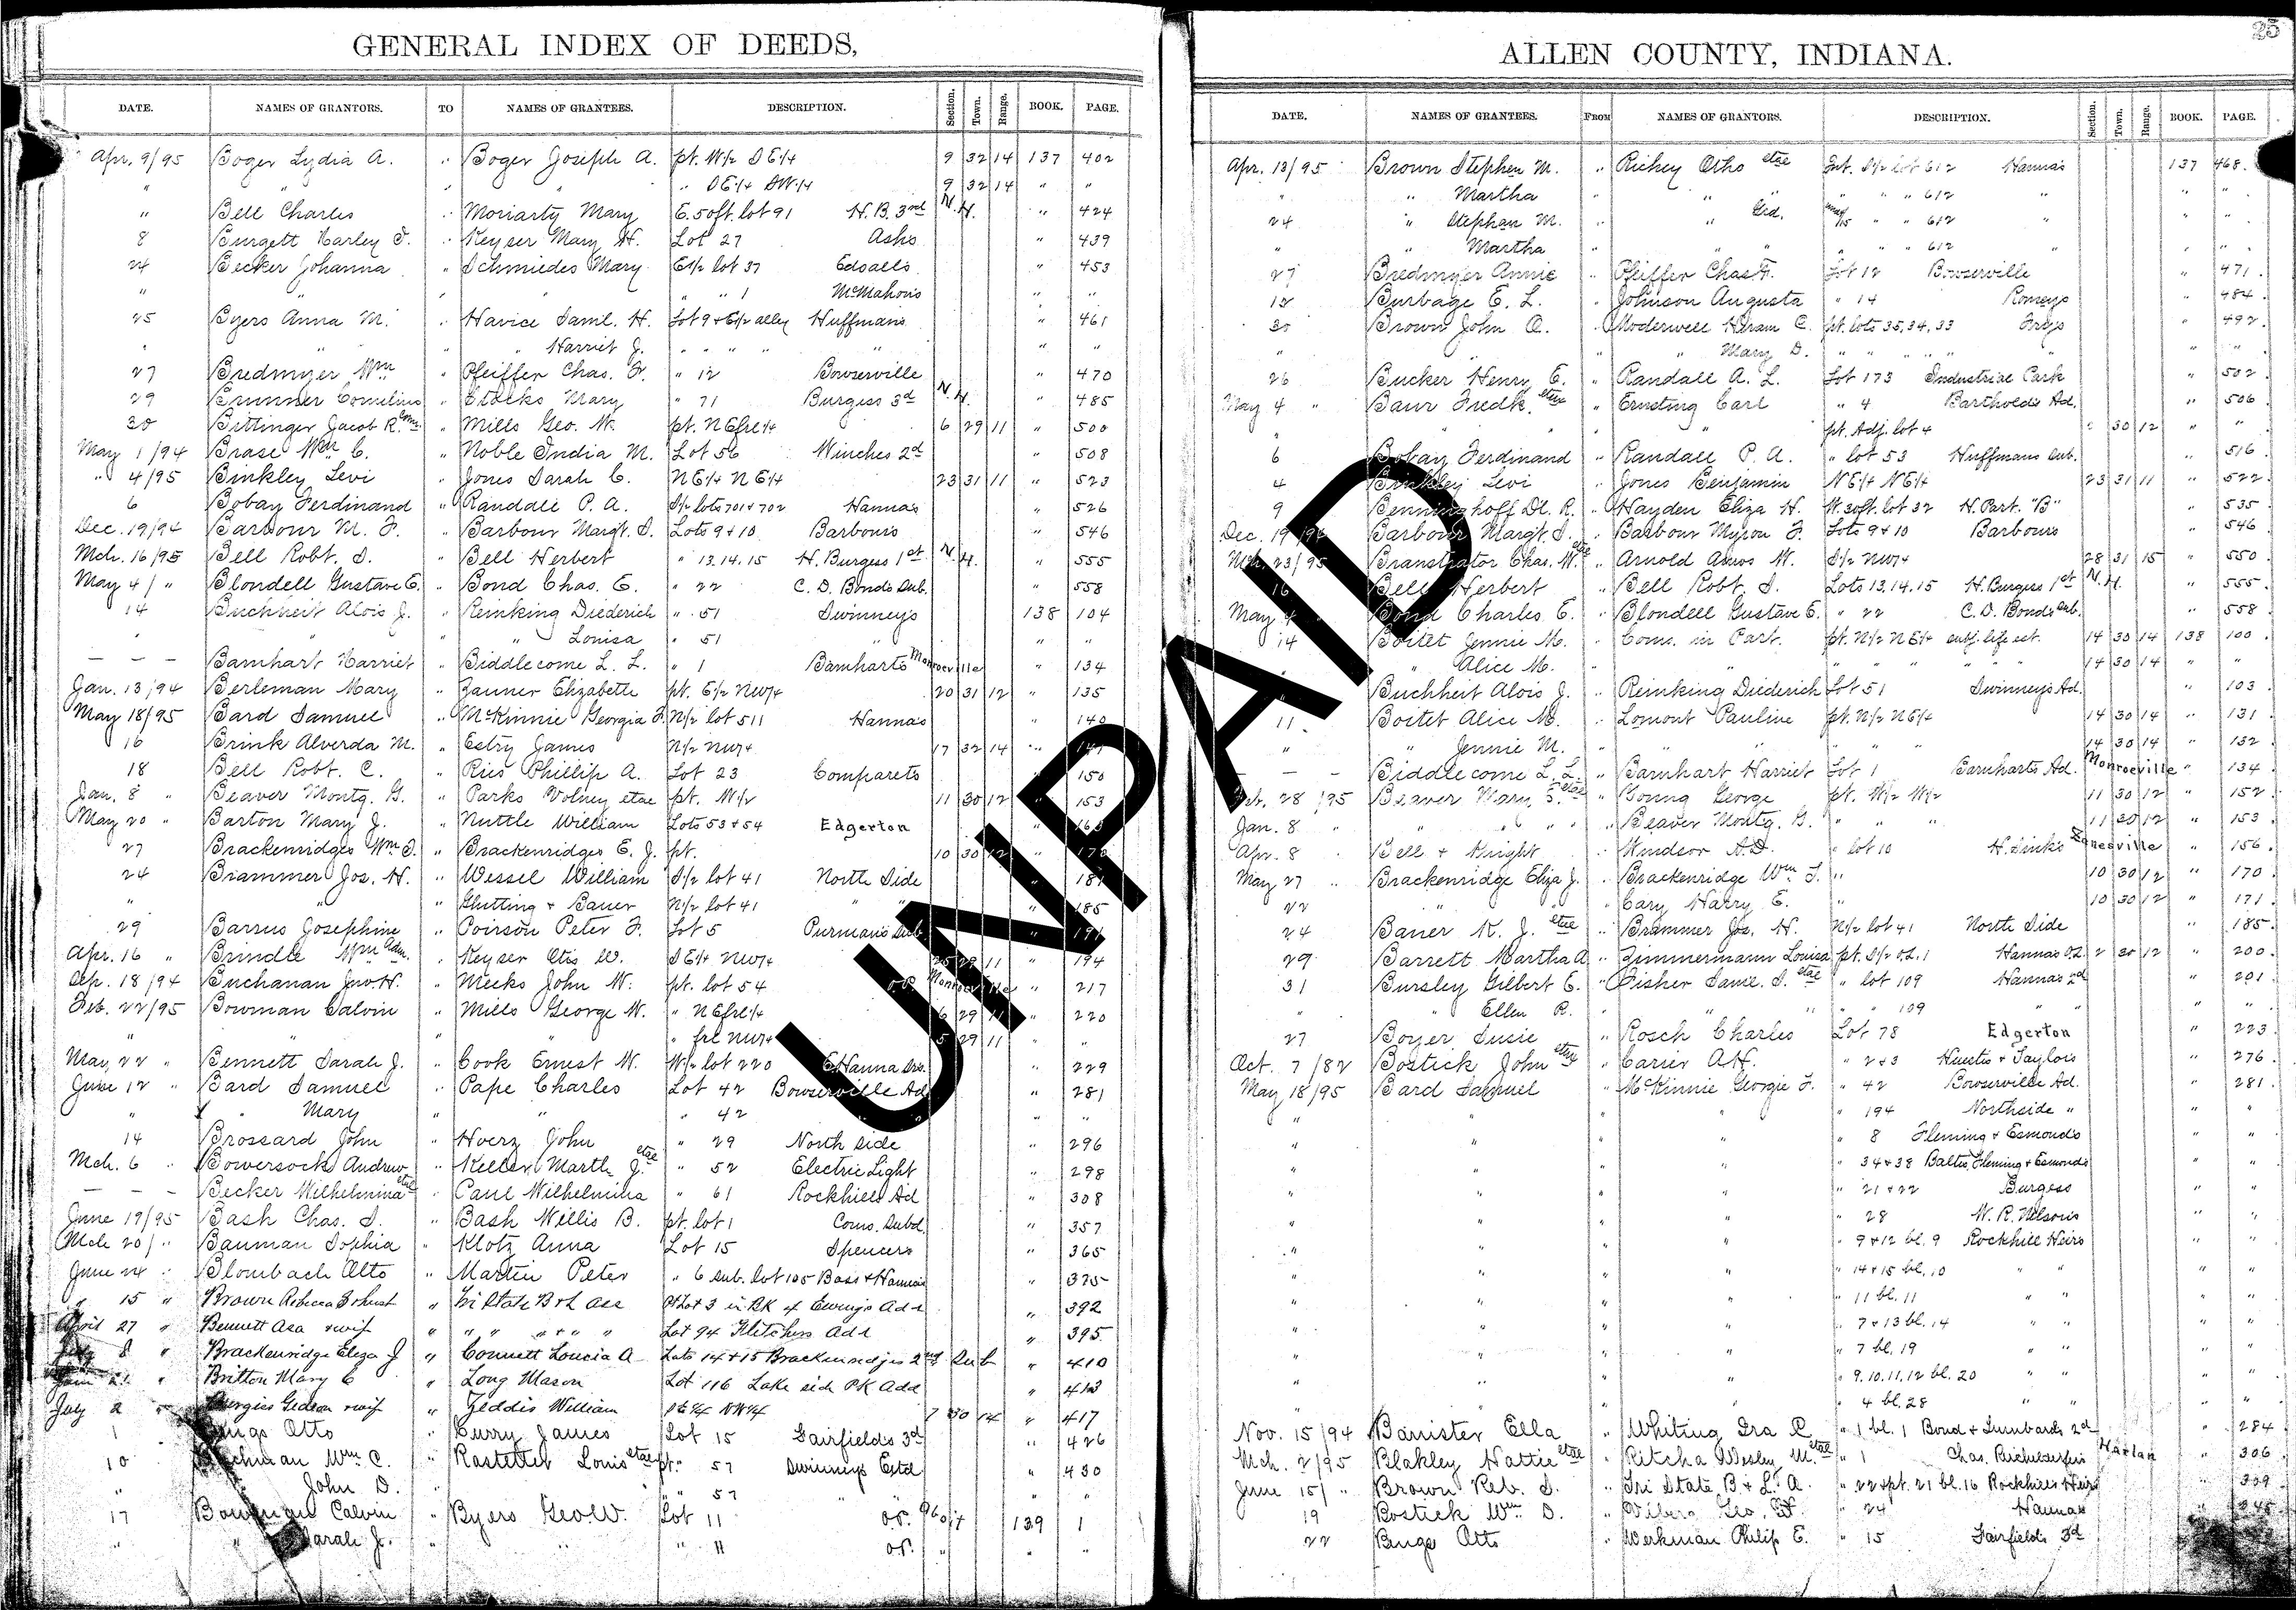 25
GENERAL INDEX OF DEEDS,
DATE. NAMES OF GRANTORS. TO NAMES OF GRANTEES. DESCRIPTION. Section. Town. Range. BOOK. PAGE.
Apr. 9/95 Boger Lydia A. " Boger Joseph A. pt. W1/2 SE1/4 9 32 14 137 402
" " " " " SE1/4 SW1/4 9 32 14 " "
" Bell Charles " Moriarty Mary E. 50ft. lot 91 H.B. 3rd N.H. " 424
8 Burgett Harley S. " Keyser Mary H. Lot 27 Ash's " 439
24 Becker Johanna " Schmieders Mary E1/2 lot 37 Edsall's " 453
" " " " " " 1 McMahon's " "
25 Byers Anna M. " Havice Saml. H. Lot 9 & E1/2 alley Huffman's " 461
" " " " Harriet J. " " " " " " "
27 Bredmyer Wm " Pfeiffer Chas. F. " 12 Bowserville " 470
29 Brunner Cornelius " Stocks Mary " 71 Burgess 3d N.H. " 485
30 Bittinger Jacob R. Com. " Mills Geo. W. pt. NEfrl1/4 6 29 11 " 500
May 1/94 Brase Wm C. " Noble India M. Lot 56 Winches 2d " 508
" 4/95 Binkley Levi " Jones Sarah C. NE1/4 NE1/4 23 31 11 " 523
6 Bobay Ferdinand " Randall P. A. S1/2 lots 701 & 702 Hanna's " 526
Dec. 19/94 Barbour M. F. " Barbour Margt. S. Lots 9 & 10 Barbour's " 546
Mch. 16/95 Bell Robt. S. " Bell Herbert " 13.14.15 H. Burgess 1st N.H. " 555
May 4/ " Blondell Gustave E. " Bond Chas. E. " 22 C. D. Bond's Sub. " 558
14 Buchheit Alois J. " Reinking Diederich " 51 Swinney's 138 104
" " " " Louisa " 51 " " "
— — — Barnhart Harriet " Biddlecome L. L. " 1 Barnharts Monroeville " 134
Jan. 13/94 Berleman Mary " Zauner Elizabeth pt. E1/2 NW1/4 20 31 12 " 135
May 18/95 Bard Samuel " McKinnie Georgia F. N1/2 lot 511 Hanna's " 140
16 Brink Alverda M. " Estry James N1/2 NW1/4 17 32 14 " 141
18 Bell Robt. C. " Ries Phillip A. Lot 23 Comparets " 150
Jan. 8 " Beaver Montg. G. " Parks Volney etal pt. W1/2 11 30 12 " 153
May 20 " Barton Mary J. " Nuttle William Lots 53 & 54 Edgerton "
27 Brackenridge Wm S. " Brackenridge E. J. pt. 10 30 12 " 170
24 Brammer Jos. H. " Wessel William S1/2 lot 41 North Side "
" " " Glutting & Bauer N1/2 lot 41 " " " 185
29 Barrus Josephine " Poirson Peter F. Lot 5 Purman's Sub. "
Apr. 16 " Brindle Wm Adm. " Keyser Otis W. SE1/4 NW1/4 25 29 11 " 194
Sep. 18/94 Buchanan Jno. H. " Meeks John W. pt. lot 54 O.P. Monroeville " 217
Feb. 22/95 Bowman Calvin " Mills George W. " NEfrl1/4 6 29 11 " 220
" " " " " frl NW1/4 5 29 11 " "
May 22 " Bennett Sarah J. " Cook Ernest W. W1/2 lot 220 E. Hanna Srs. " 229
June 12 " Bard Samuel " Pape Charles Lot 42 Bowserville Ad " 281
" " Mary " " " 42 " "
14 Brossard John " Hoerz John " 29 North side " 296
Mch. 6 " Bowersock Andrew " Keller Martha J. etal " 52 Electric Light " 298
— — — Becker Wilhelmina etal " Paul Wilhelmina " 61 Rockhill's Ad " 308
June 19/95 Bash Chas. S. " Bash Willis B. pt. lot 1 Coms. Subd. " 357
Mch 20/ " Bauman Sophia " Klotz Anna Lot 15 Spencer's " 365
June 24 " Blombach Otto " Martin Peter " 6 Sub. lot 105 Bass & Hanna's " 375
" 15 " Brown Rebecca S & husb " Tri State B & L Ass Pt Lot 3 in BK 4 Ewing's Add " 392
April 27 " Bennett Asa & wife " " " " " " Lot 94 Fletchers Add " 395
July 8 " Brackenridge Eliza J " Connett Loucia A Lots 14 & 15 Brackenridges 2nd Sub " 410
June 21 " Britton Mary C " Long Mason Lot 116 Lake side PK Add " 413
July 2 " Burgiss Gideon & wife " Geddis William SE1/4 NW1/4 7 30 14 " 417
1 Bugs Otto " Curry James Lot 15 Fairfield's 3d " 426
10 Wm C. " Rastetter Louis etal pt. " 57 Swinney's Estd " 430
" John D. " " 57 " " "
17 Bowman Calvin " Byers Geo. W. Lot 11 O.P. 139 1
" " Sarah J. " " " 11 O.P. " "
ALLEN COUNTY, INDIANA.
DATE. NAMES OF GRANTEES. FROM NAMES OF GRANTORS. DESCRIPTION. Section. Town. Range. BOOK. PAGE.
Apr. 13/95 Brown Stephen M. " Richey Otho etal Int. S1/2 lot 612 Hanna's 137 468.
" " Martha " " " " 612 " " "
24 " Stephen M. " " Grd. " " 612 " " "
" " Martha " " " " 612 " " "
27 Bredmyer Annie " Pfeiffer Chas. F. Lot 12 Bowserville " 471.
12 Burbage E. L. " Johnson Augusta " 14 Romeys " 484.
30 Brown John A. " Moderwell Hiram C. pt. lots 35, 34, 33 Frys " 492.
" " " " Mary D. " " " " " " "
26 Bucker Henry E. " Randall A. L. Lot 173 Industrial Park " 502.
May 4 " Baur Fredk. etux " Ernsting Carl " 4 Barthold's Ad. " 506
" " " " pt. Adj. lot 4 30 12 " "
6 Bobay Ferdinand " Randall P. A. " lot 53 Huffmans Sub. " 516
4 Brinkley Levi " Jones Benjamin NE1/4 NE1/4 23 31 11 " 522.
9 Benninghoff Dl. R. " Hayden Eliza H. W. 30ft. lot 32 H. Part. "B" " 535
Dec. 19/94 Barbour Margt. S. " Barbour Myron F. Lots 9 & 10 Barbour's " 546
Mch. 23/95 Branstrator Chas. W. etal " Arnold Amos W. S1/2 NW1/4 28 31 15 " 550.
16 Bell Herbert " Bell Robt. S. Lots 13.14.15 H. Burgess 1st N.H. " 555.
May 4 Bond Charles E. " Blondell Gustave E. " 22 C. D. Bond's Sub. " 558.
14 Boitet Jennie M. " Coms. in Part. pt. N1/2 NE1/4 subj. life est. 14 30 14 138 100.
" " Alice M. " " " " " 14 30 14 " "
" Buchheit Alois J. " Reinking Diederich Lot 51 Swinney's Ad. " 103.
11 Boitet Alice M. " Lomont Pauline pt. N1/2 NE1/4 14 30 14 " 131.
" " Jennie M. " " " " 14 30 14 " 132
— — — Biddlecome L. L. " Barnhart Harriet Lot 1 Barnharts Ad. Monroeville " 134.
Feb. 28/95 Beaver Mary S. etal " Young George pt. W1/2 W1/2 11 30 12 " 152.
Jan. 8 " " " " " Beaver Montg. G. " " " 11 30 12 " 153.
Apr. 8 " Bell & Knight " Windsor A. D. " lot 10 H. Link's Zanesville " 156.
May 27 " Brackenridge Eliza J. " Brackenridge Wm S. " 10 30 12 " 170
22 " " Cary Harry E. " 10 30 12 " 171
24 Bauer K. J. etal " Brammer Jos. H. N1/2 lot 41 North Side " 185.
29 Barrett Martha A. " Zimmermann Louisa pt. S1/2 O.L. 1 Hanna's O.L. 2 30 12 " 200.
31 Bursley Gilbert E. " Fisher Saml. S. etal " lot 109 Hanna's 2d " 201
" " Ellen R. " " " 109 " " "
27 Boyer Susie " Rosch Charles Lot 78 Edgerton " 223
Oct. 7/82 Bostick John etux " Carier A. H. " 2 & 3 Huestis & Taylors " 276
May 18/95 Bard Samuel " McKinnie Georgie F. " 42 Bowserville Ad. " 281
" " " " 194 Northside " " "
" " " " 8 Fleming & Esmond's " "
" " " " 34 & 38 Baltes, Fleming & Esmond's " "
" " " " 21 & 22 Burgess " "
" " " " 28 W. R. Nelson's " "
" " " " 9 & 12 bl. 9 Rockhill Heirs " "
" " " " 14 & 15 bl. 10 " " " "
" " " " 11 bl. 11 " " " "
" " " " 7 & 13 bl. 14 " " " "
" " " " 7 bl. 19 " " " "
" " " " 9.10.11.12 bl. 20 " " " "
" " " " 4 bl. 28 " " " "
Nov. 15/94 Banister Ella " Whiting Ira C. " 1 bl. 1 Bond & Lumbards 2d " 284
Mch. 2/95 Blakley Hattie etal " Ritcha Wesley M. etal " 1 Chas. Harlan " 306
June 15/ " Brown Reb. S. " Tri State B & L. A. " 22 & pt. 21 bl. 16 Rockhill's Heirs " 309
19 Bostick Wm. D. " Geo. " 24 Hannas " 345
22 Bugs Otto " Werkman Philip E. " 15 Fairfields 3d
UNPAID